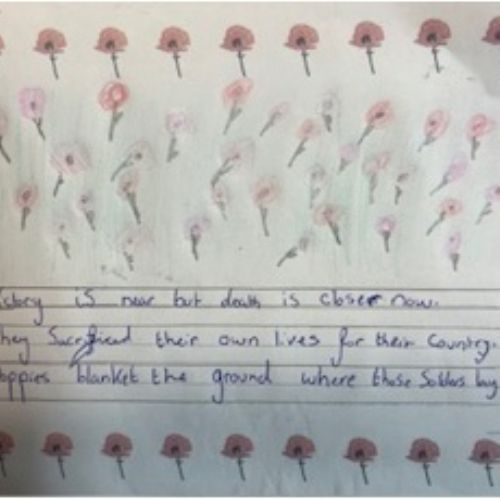 ictory is near but death is closer now.
hey Sacrificed their own lives for their Country.
oppies blanket the ground where those Soldiers lay